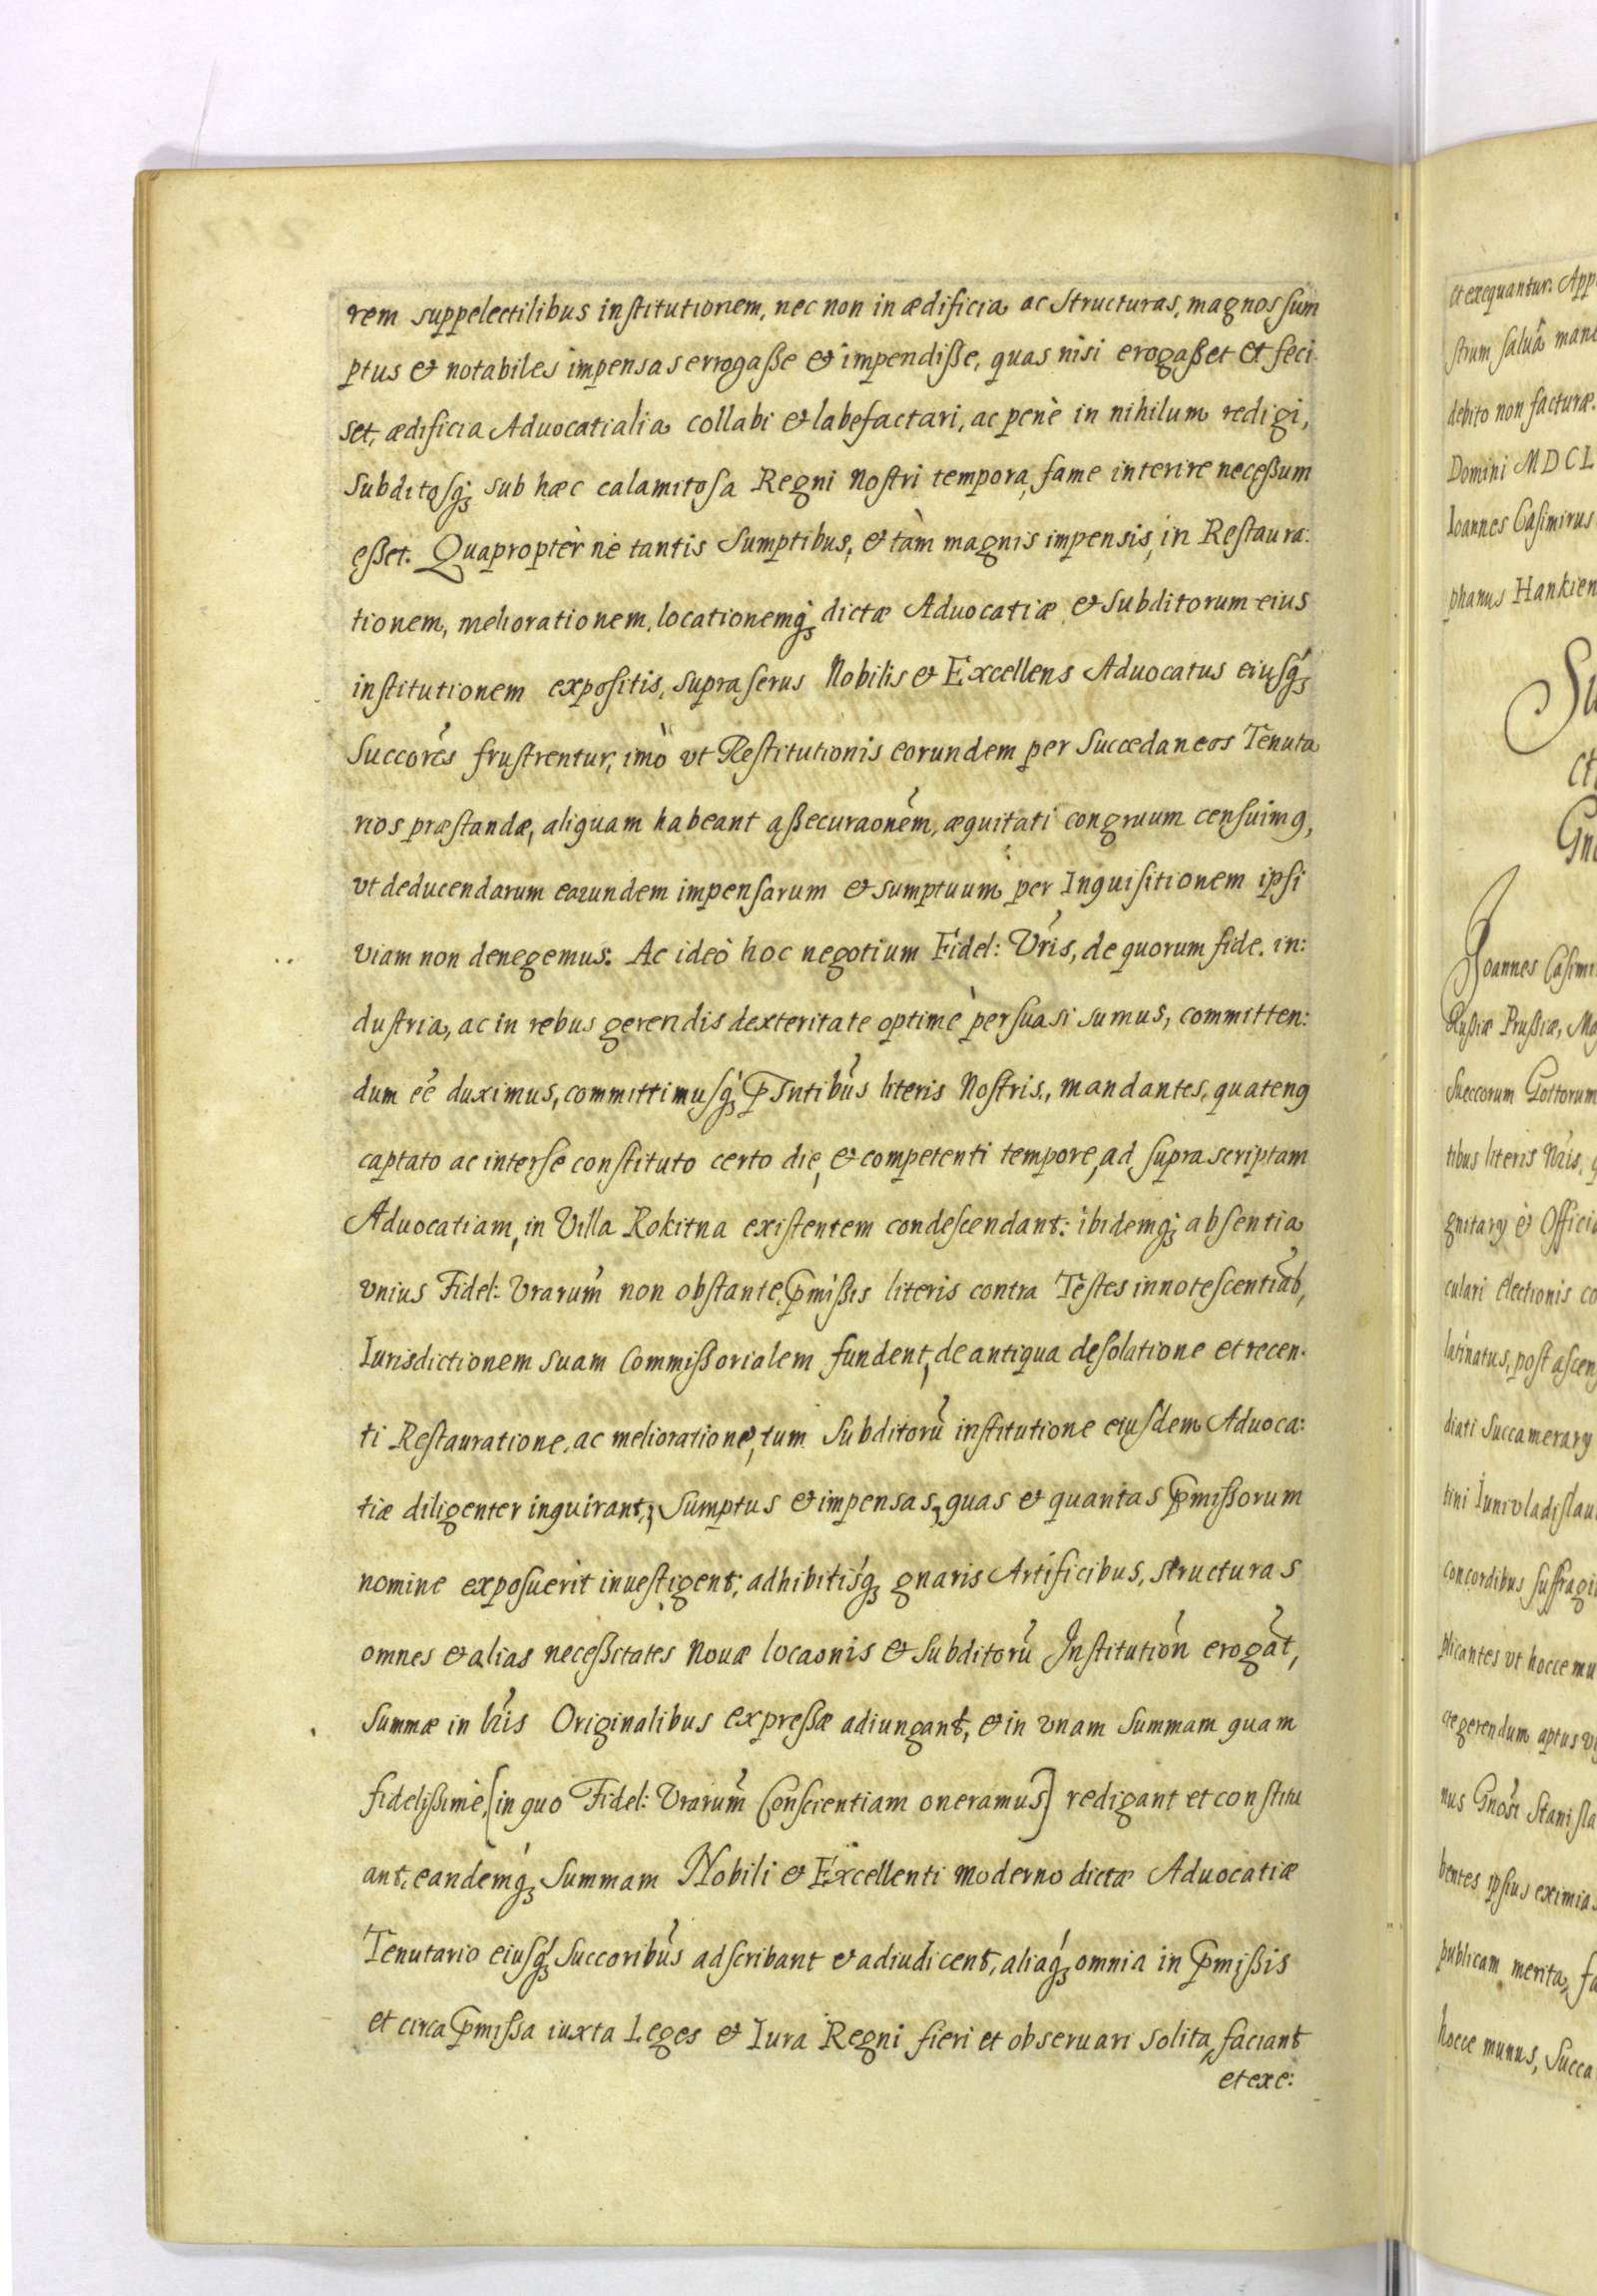 rem suppelectilibus institutionem, nec non in ædificia ac Structuras, magnos sum
ptus et notabiles impensas errogaße et impendiße, quas nisi erogaßet et feci
set, ædificia Aduocatialia collabi et labefactari, ac penè in nihilum redigi,
Subditosq; sub hæc calamitosa Regni Nostri tempora, fame interire neceßum
eßet. Quapropter ne tantis Sumptibus, et tàm magnis impensis, in Restaura:
tionem, meliorationem, locationemq; dictæ Aduocatiæ et Subditorum eius
institutionem expositis, supraserus Nobilis et Excellens Aduocatus eiusq;
Succores frustrentur, imò vt Restitutionis eorundem per Succedaneos Tenuta
rios præstandæ, aliquam habeant aßecuraonem, æquitati congruum censuimq,
vt deducendarum earundem impensarum et sumptuum per Inquisitionem ipsi
viam non denegemus. Ac ideò hoc negotium Fidel: Vris, de quorum fide, in:
dustria, ac in rebus gerendis dexteritate optimè persuasi sumus, committen:
dum eé duximus, committimusq; Pñtibus literis Nostris, mandantes, quatenq
captato ac interse constituto certo die, et competenti tempore, ad supra scriptam
Aduocatiam, in Villa Rokitna existentem condescendant: ibidemq; absentia
vnius Fidel: Vrarum non obstante, Pmißis literis contra Testes innotescentiab,
Iurisdictionem suam Commißorialem fundent, de antiqua desolatione et recen.
ti Restauratione, ac melioratione, tum Subditorũ institutione eiusdem Aduoca:
tiæ diligenter inquirant; Sumptus et impensas, quas et quantas Pmißorum
nomine exposuerit inuestigent; adhibitisq; gnaris Artificibus, structuras
omnes et alias neceßitates Nouæ locaonis et Subditorũ Institution erogat,
Summæ in lris Originalibus expreßæ adiungant, et in vnam Summam quam
fidelißimè, [in quo Fidel: Vrarum Conscientiam oneramus] redigant et constitu
ant, eandemq; Summam Nobili et Excellenti moderno dictæ Aduocatiæ
Tenutario eiusq; Succoribus adscribant et adiudicent, aliaq; omnia in Pmißis
et circa Pmissa iuxta Leges et Iura Regni fieri et obseruari solita, faciant
et exe:
et exequantur. App
strum salua man
debito non facturæ.
Domini MDCL
Ioannes Casimirus
phanus Hankien
Su
ct
Gn
Joannes Casimi
Rußiæ Prußiæ, Ma
Sueccorum Gottorum
tibus literis Nris, q
gnitary et Offici
culari electionis co
latinatus, post ascen
diati Succamerary
tini Iuniuladislau
concordibus suffragi
plicantes vt hocce mu
gerendum aptus vi
nus Gnosi Stanisla
bentes ipsius eximia
publicam merita, fa
hocce munus, Succa